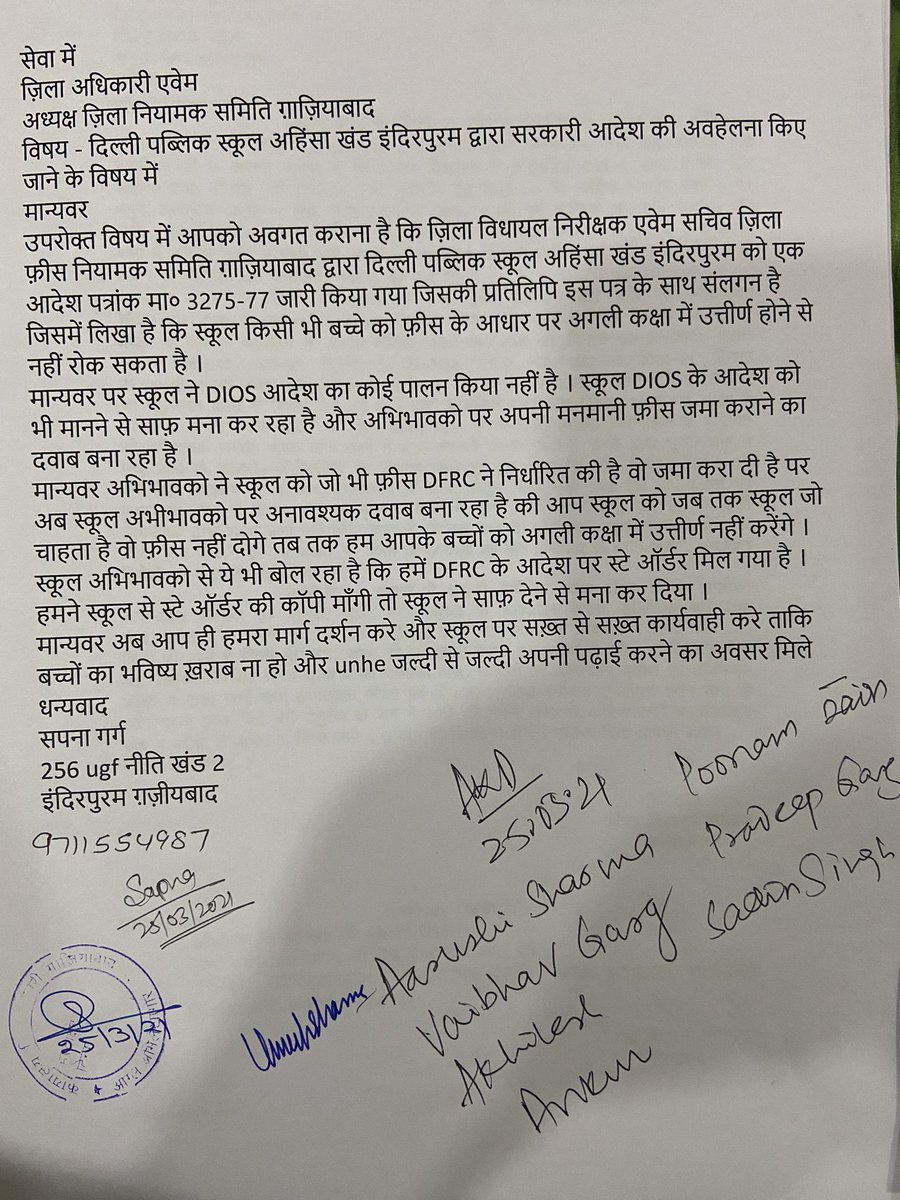 सेवा में
ज़िला अधिकारी एवेम
अध्यक्ष ज़िला नियामक समिति ग़ाज़ियाबाद
विषय - दिल्ली पब्लिक स्कूल अहिंसा खंड इंदिरपुरम द्वारा सरकारी आदेश की अवहेलना किए
जाने के विषय में
मान्यवर
उपरोक्त विषय में आपको अवगत कराना है कि ज़िला विधायल निरीक्षक एवेम सचिव ज़िला
फ़ीस नियामक समिति ग़ाज़ियाबाद द्वारा दिल्ली पब्लिक स्कूल अहिंसा खंड इंदिरपुरम को एक
आदेश पत्रांक मा० 3275-77 जारी किया गया जिसकी प्रतिलिपि इस पत्र के साथ संलगन है
जिसमें लिखा है कि स्कूल किसी भी बच्चे को फ़ीस के आधार पर अगली कक्षा में उत्तीर्ण होने से
नहीं रोक सकता है ।
मान्यवर पर स्कूल ने DIOS आदेश का कोई पालन किया नहीं है । स्कूल DIOS के आदेश को
भी मानने से साफ़ मना कर रहा है और अभिभावको पर अपनी मनमानी फ़ीस जमा कराने का
दवाब बना रहा है ।
मान्यवर अभिभावको ने स्कूल को जो भी फ़ीस DFRC ने निर्धारित की है वो जमा करा दी है पर
अब स्कूल अभीभावको पर अनावश्यक दवाब बना रहा है की आप स्कूल को जब तक स्कूल जो
चाहता है वो फ़ीस नहीं दोगे तब तक हम आपके बच्चों को अगली कक्षा में उत्तीर्ण नहीं करेंगे ।
स्कूल अभिभावको से ये भी बोल रहा है कि हमें DFRC के आदेश पर स्टे ऑर्डर मिल गया है ।
हमने स्कूल से स्टे ऑर्डर की कॉपी माँगी तो स्कूल ने साफ़ देने से मना कर दिया ।
मान्यवर अब आप ही हमरा मार्ग दर्शन करे और स्कूल पर सख़्त से सख़्त कार्यवाही करे ताकि
बच्चों का भविष्य ख़राब ना हो और unhe जल्दी से जल्दी अपनी पढ़ाई करने का अवसर मिले
धन्यवाद
सपना गर्ग
256 ugf नीति खंड 2
इंदिरपुरम ग़ज़ीयबाद
9711554987
Sapna
25/03/2021
25/3/21
25.03.21
Poonam Jain
Aarushi Sharma
Pradeep Garg
Vaibhav Garg
Sachin Singh
Akhilesh
Ankur